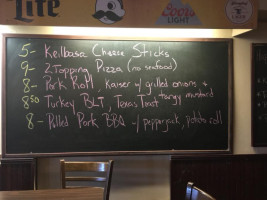 Lite
Coors
LIGHT
5- Keilbasa Cheese Sticks
9- 2 Topping Pizza (no seafood)
8- Pork Roll, Kaiser w/ grilled onions &
tangy mustard
8.50 Turkey BLT, Texas Toast
8- Pulled Pork BBQ w/ pepperjack, potato roll